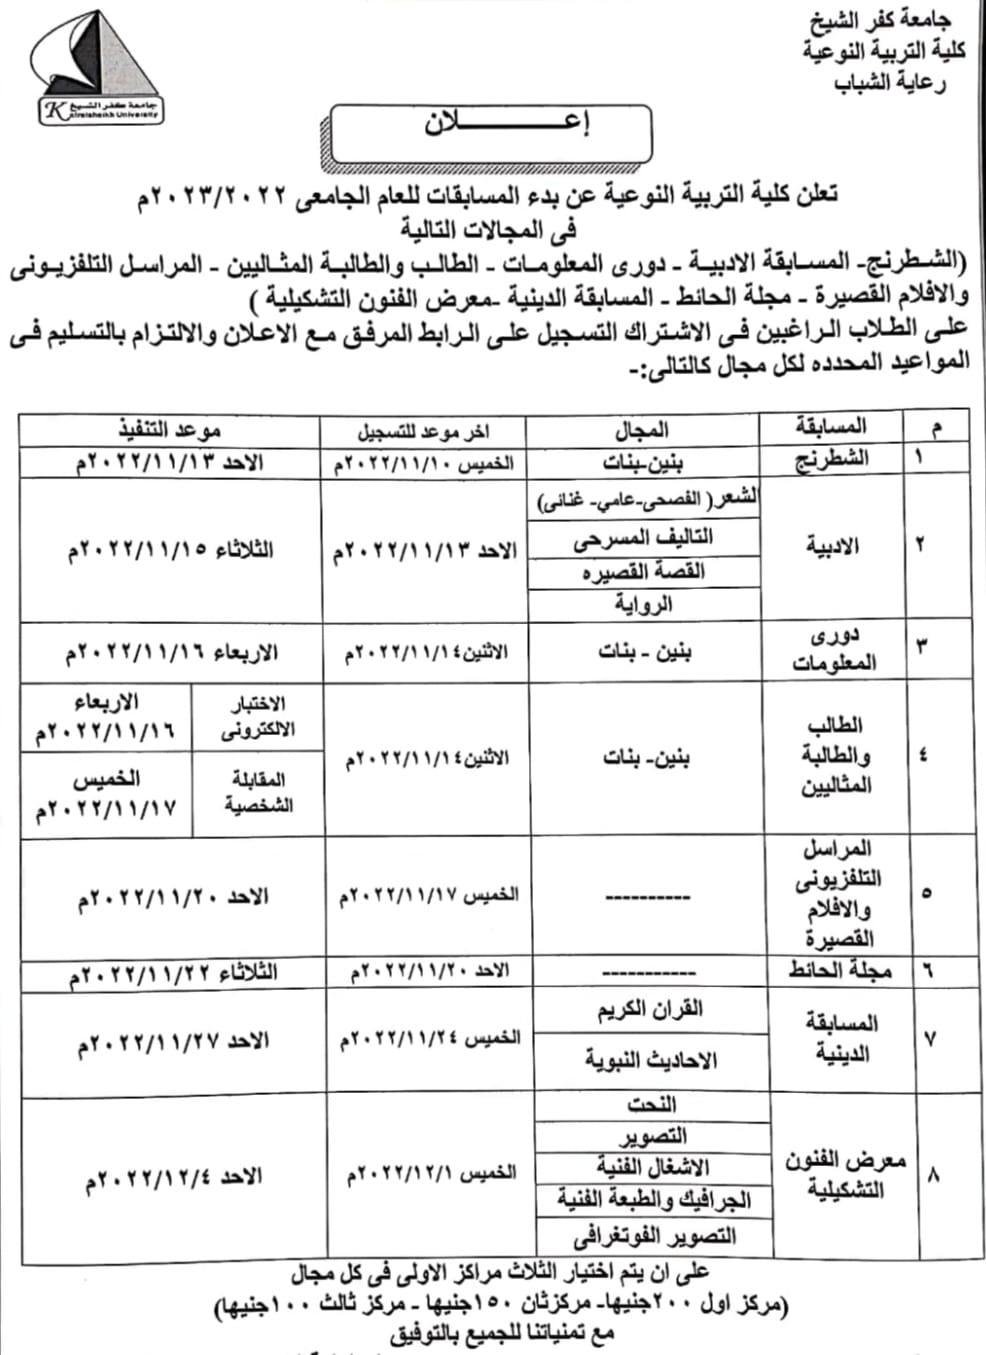 جامعة كفر الشيخ
كلية التربية النوعية
رعاية الشباب
جامعة كفر الشيخ
Kafrelsheikh University
إعـــــــلان
تعلن كلية التربية النوعية عن بدء المسابقات للعام الجامعى ٢٠٢٣/٢٠٢٢م
فى المجالات التالية
(الشطرنج- المسابقة الادبية - دورى المعلومات - الطالب والطالبة المثاليين - المراسل التلفزيونى
والافلام القصيرة - مجلة الحائط - المسابقة الدينية -معرض الفنون التشكيلية )
على الطلاب الراغبين فى الاشتراك التسجيل على الرابط المرفق مع الاعلان والالتزام بالتسليم فى
المواعيد المحدده لكل مجال كالتالى:-
م المسابقة المجال اخر موعد للتسجيل موعد التنفيذ
١ الشطرنج بنين-بنات الخميس ٢٠٢٢/١١/١٠م الاحد ٢٠٢٢/١١/١٣م
٢ الادبية
الشعر( الفصحى-عامي- غنائى)
التاليف المسرحى
القصة القصيره
الرواية
الاحد ٢٠٢٢/١١/١٣م الثلاثاء ٢٠٢٢/١١/١٥م
٣ دورى
المعلومات
بنين - بنات الاثنين٢٠٢٢/١١/١٤م الاربعاء ٢٠٢٢/١١/١٦م
٤ الطالب
والطالبة
المثاليين
بنين- بنات الاثنين٢٠٢٢/١١/١٤م
الاختبار
الالكترونى
الاربعاء
٢٠٢٢/١١/١٦م
المقابلة
الشخصية
الخميس
٢٠٢٢/١١/١٧م
٥ المراسل
التلفزيونى
والافلام
القصيرة
---------- الخميس ٢٠٢٢/١١/١٧م الاحد ٢٠٢٢/١١/٢٠م
٦ مجلة الحائط ----------- الاحد ٢٠٢٢/١١/٢٠م الثلاثاء ٢٠٢٢/١١/٢٢م
٧ المسابقة
الدينية
القران الكريم
الاحاديث النبوية
الخميس ٢٠٢٢/١١/٢٤م الاحد ٢٠٢٢/١١/٢٧م
٨ معرض الفنون
التشكيلية
النحت
التصوير
الاشغال الفنية
الجرافيك والطبعة الفنية
التصوير الفوتغرافى
الخميس ٢٠٢٢/١٢/١م الاحد ٢٠٢٢/١٢/٤م
على ان يتم اختيار الثلاث مراكز الاولى فى كل مجال
(مركز اول ٢٠٠جنيها- مركزثان ١٥٠جنيها - مركز ثالث ١٠٠جنيها)
مع تمنياتنا للجميع بالتوفيق